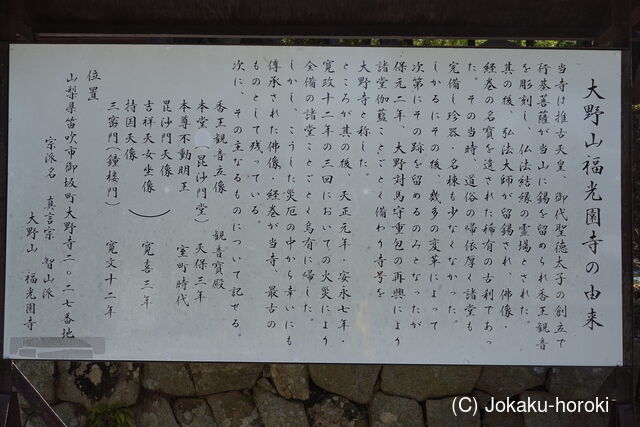 大野山福光園寺の由来
当寺は推古天皇、御代聖徳太子の創立で
行基菩薩が当山に錫を留められ香王観音
を彫刻し、仏法結縁の霊場とされた。
其の後、弘法大師が留錫され、佛像・
経巻の名寶を遺された稀有の古刹であっ
た。その当時、道俗の帰依厚く諸堂も
完備し珍器、名棟も少なくなかった。
しかるにその後、幾多の変革によって
次第にその跡を留めるのみとなったが
保元二年、大野対馬守重包の再興により
諸堂伽藍ことごとく備わり寺号を
大野寺と称した。
ところが其の後、天正元年・安永七年・
寛政十二年の三回においての火災により
全備の諸堂ことごとく烏有に帰した。
しかし、こうした災厄の中から幸いにも
傳承された佛像、経巻が当寺、最古の
ものとして残っている。
次に、その主なるものについて記せる。
香王観音立像 観音寶殿
本堂(毘沙門堂) 天保三年
本尊不動明王 室町時代
毘沙門天像
吉祥天女坐像 寛喜三年
持国天像
三密門(鐘楼門) 寛文十二年
位置
山梨県笛吹市御坂町大野寺二〇二七番地
宗派名 真言宗 智山派
大野山 福光園寺
(C) Jokaku-horoki